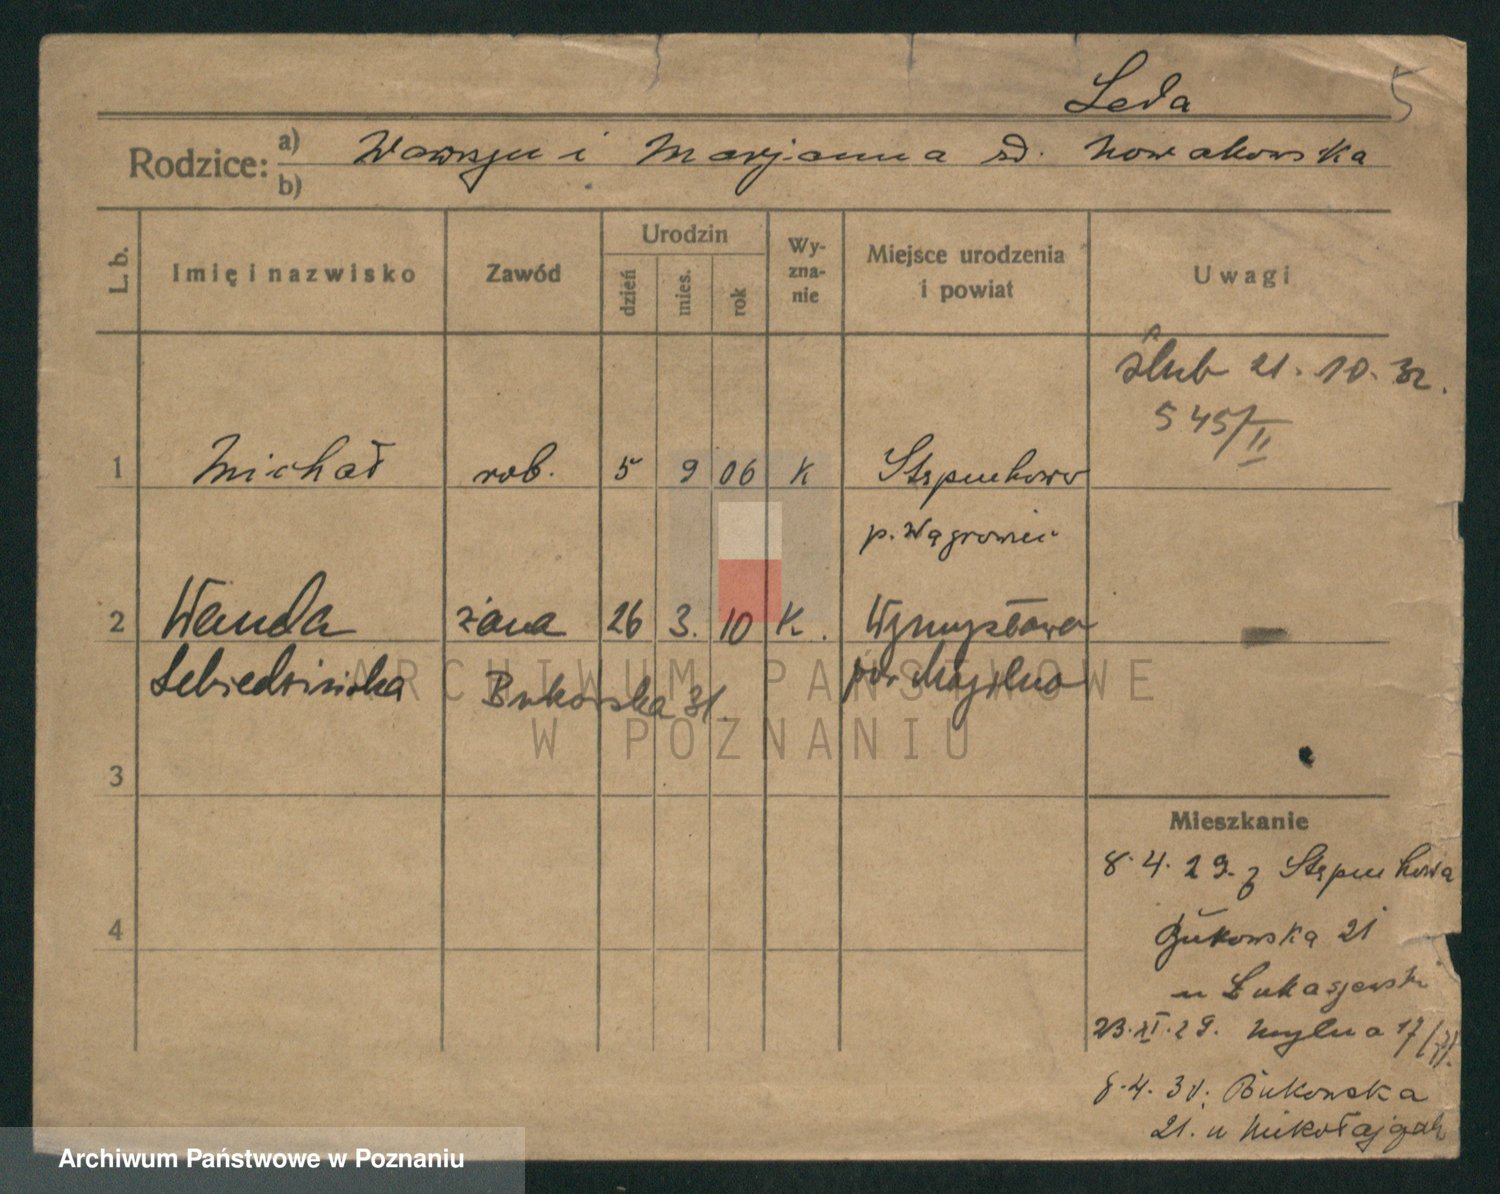 Leda 5
Rodzice: a) Wawrzyn i Marjanna rd. Nowakowska
b)
L. b. Imię i nazwisko Zawód Urodzin dzień mies. rok Wy-zna-nie Miejsce urodzenia i powiat Uwagi
ślub 21. 10. 32.
545/II
1 Michał rob. 5 9 06 K Stępuchowo
p. Wągrowiec
2 Wanda żona 26 3. 10 K. Wymysłowo
Lebiedzińska Bukowska 31 pow. Mogilno
ARCHIWUM PAŃSTWOWE
W POZNANIU
3
Mieszkanie
8. 4. 29. z Stępuchowa
4
Bukowska 21
u Łukaszewski
23. XI. 29. Mylna 17/
8. 4. 30. Bukowska
21. u Mikołajczak
Archiwum Państwowe w Poznaniu